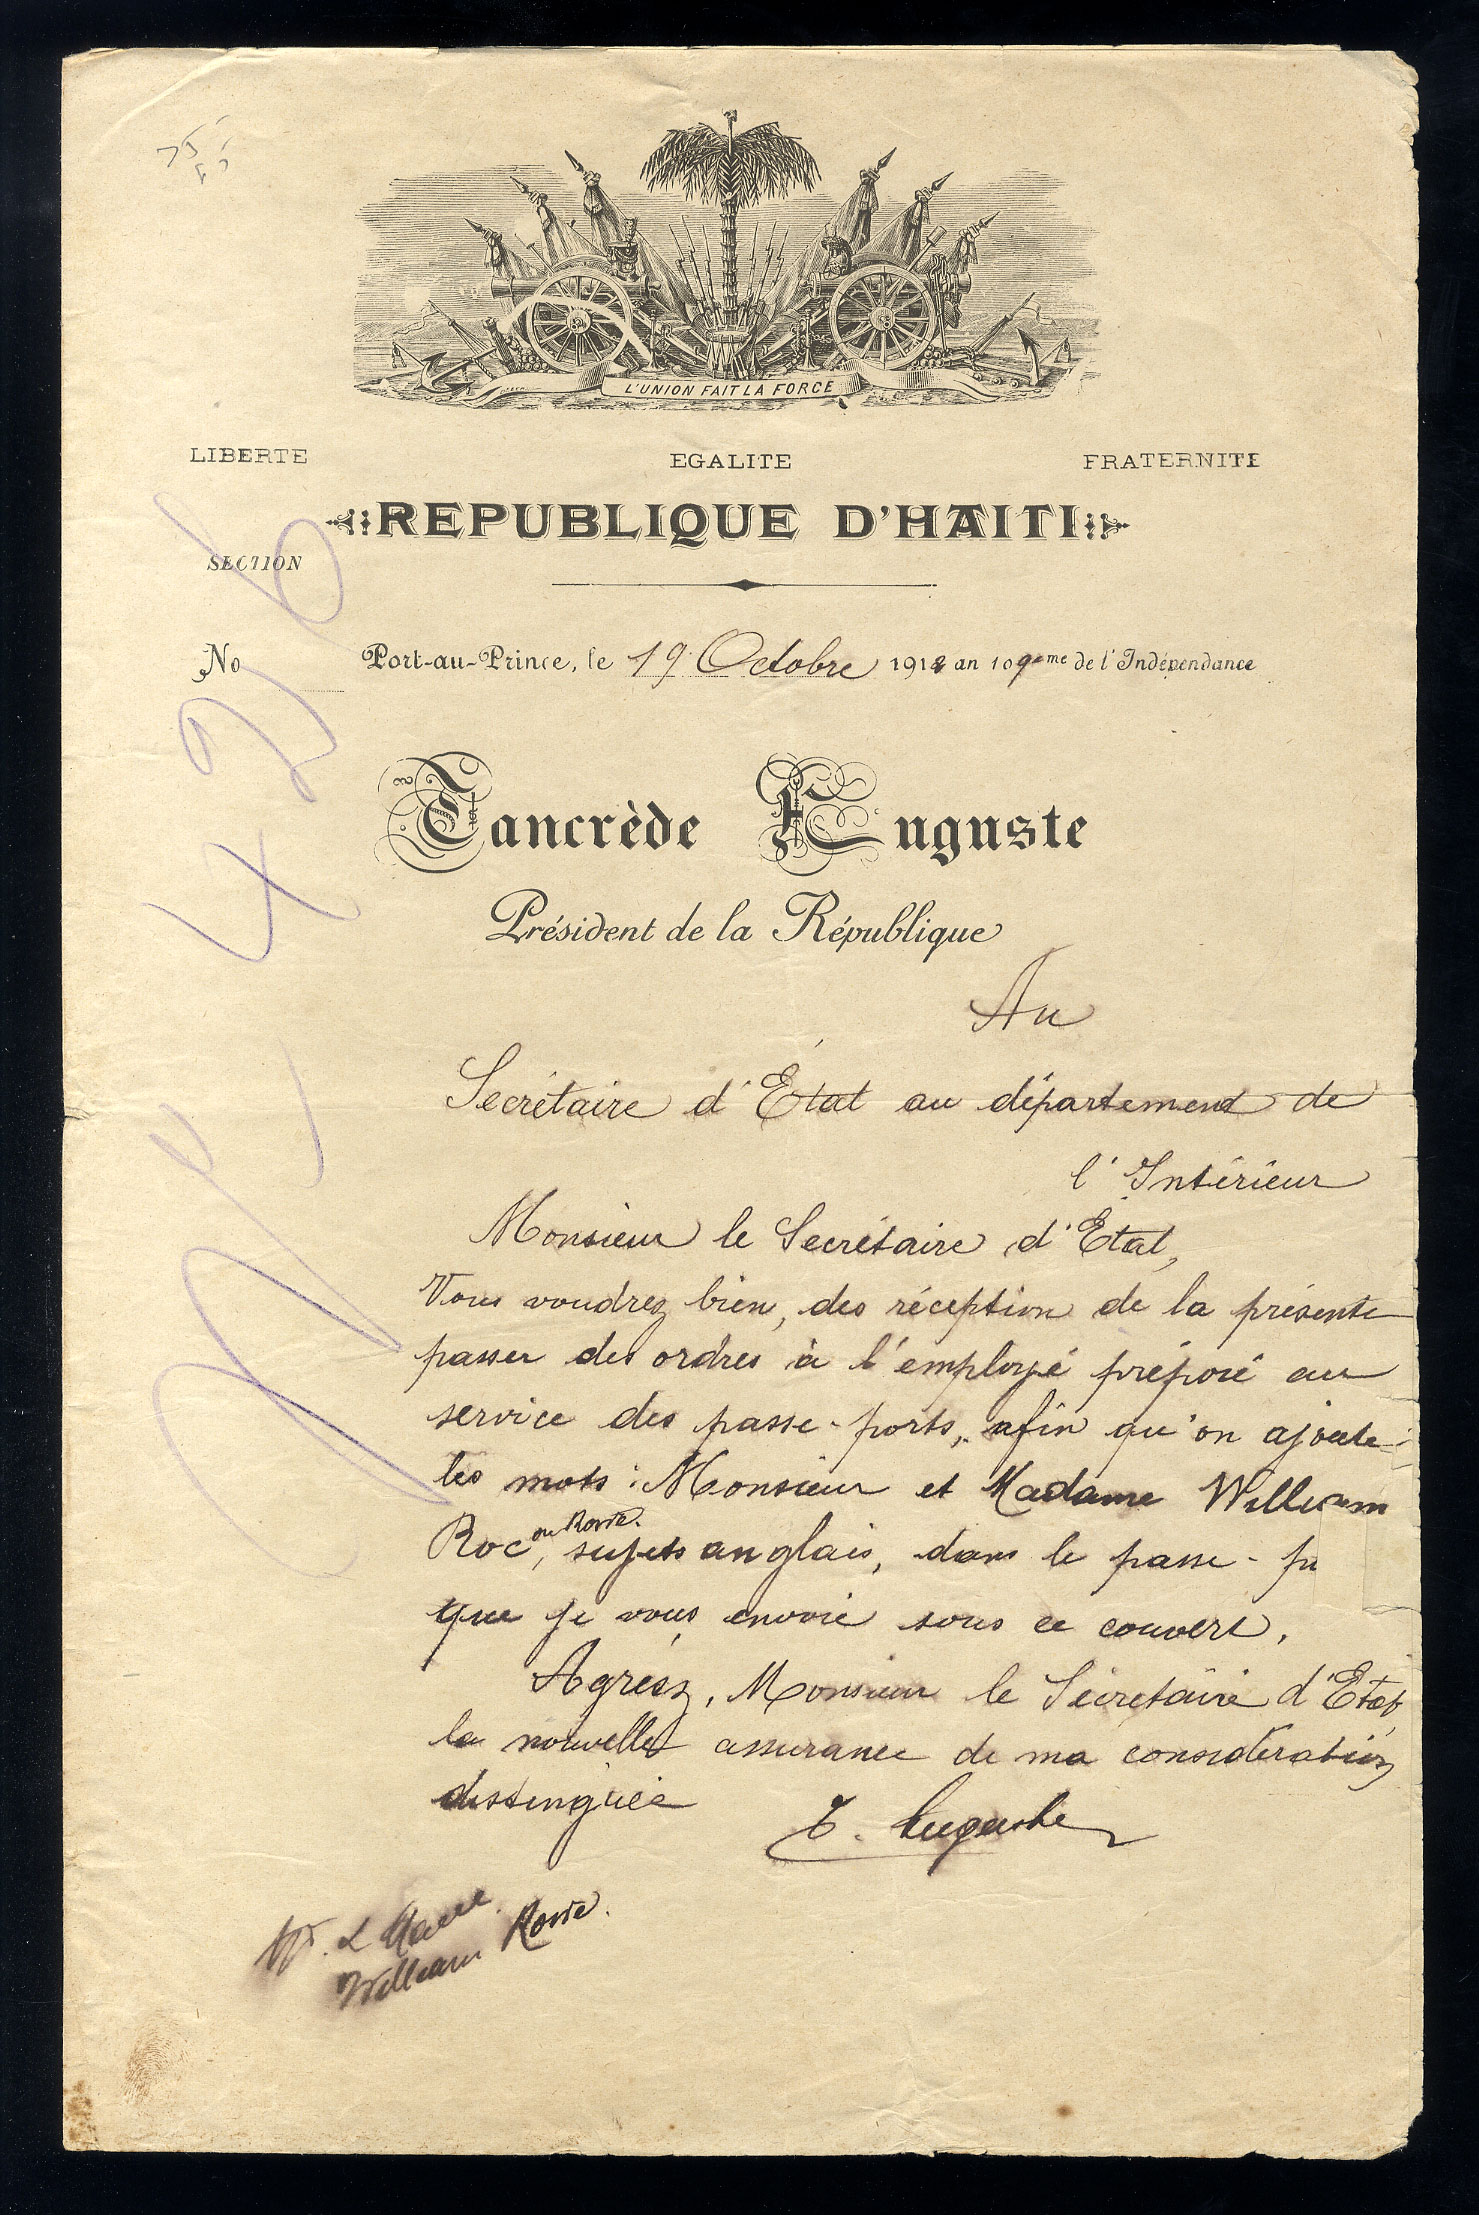 L'UNION FAIT LA FORCE
LIBERTE EGALITE FRATERNITE
REPUBLIQUE D'HAITI
SECTION
No
Port-au-Prince, le 19 Octobre 1912 an 109ème de l'Indépendance
Tancrède Auguste
Président de la République
Au
Secrétaire d'État au département de
l'Intérieur
Monsieur le Secrétaire d'État,
Vous voudrez bien, dès réception de la présente
passer des ordres à l'employé préposé au
service des passe-ports, afin qu'on ajoute
les mots : Monsieur et Madame William
ou Rowe.
Roc, sujets anglais, dans le passe-po
que je vous envoie sous ce couvert.
Agréez, Monsieur le Secrétaire d'État
la nouvelle assurance de ma considération
distinguée
T. Auguste
William Rowe.
426